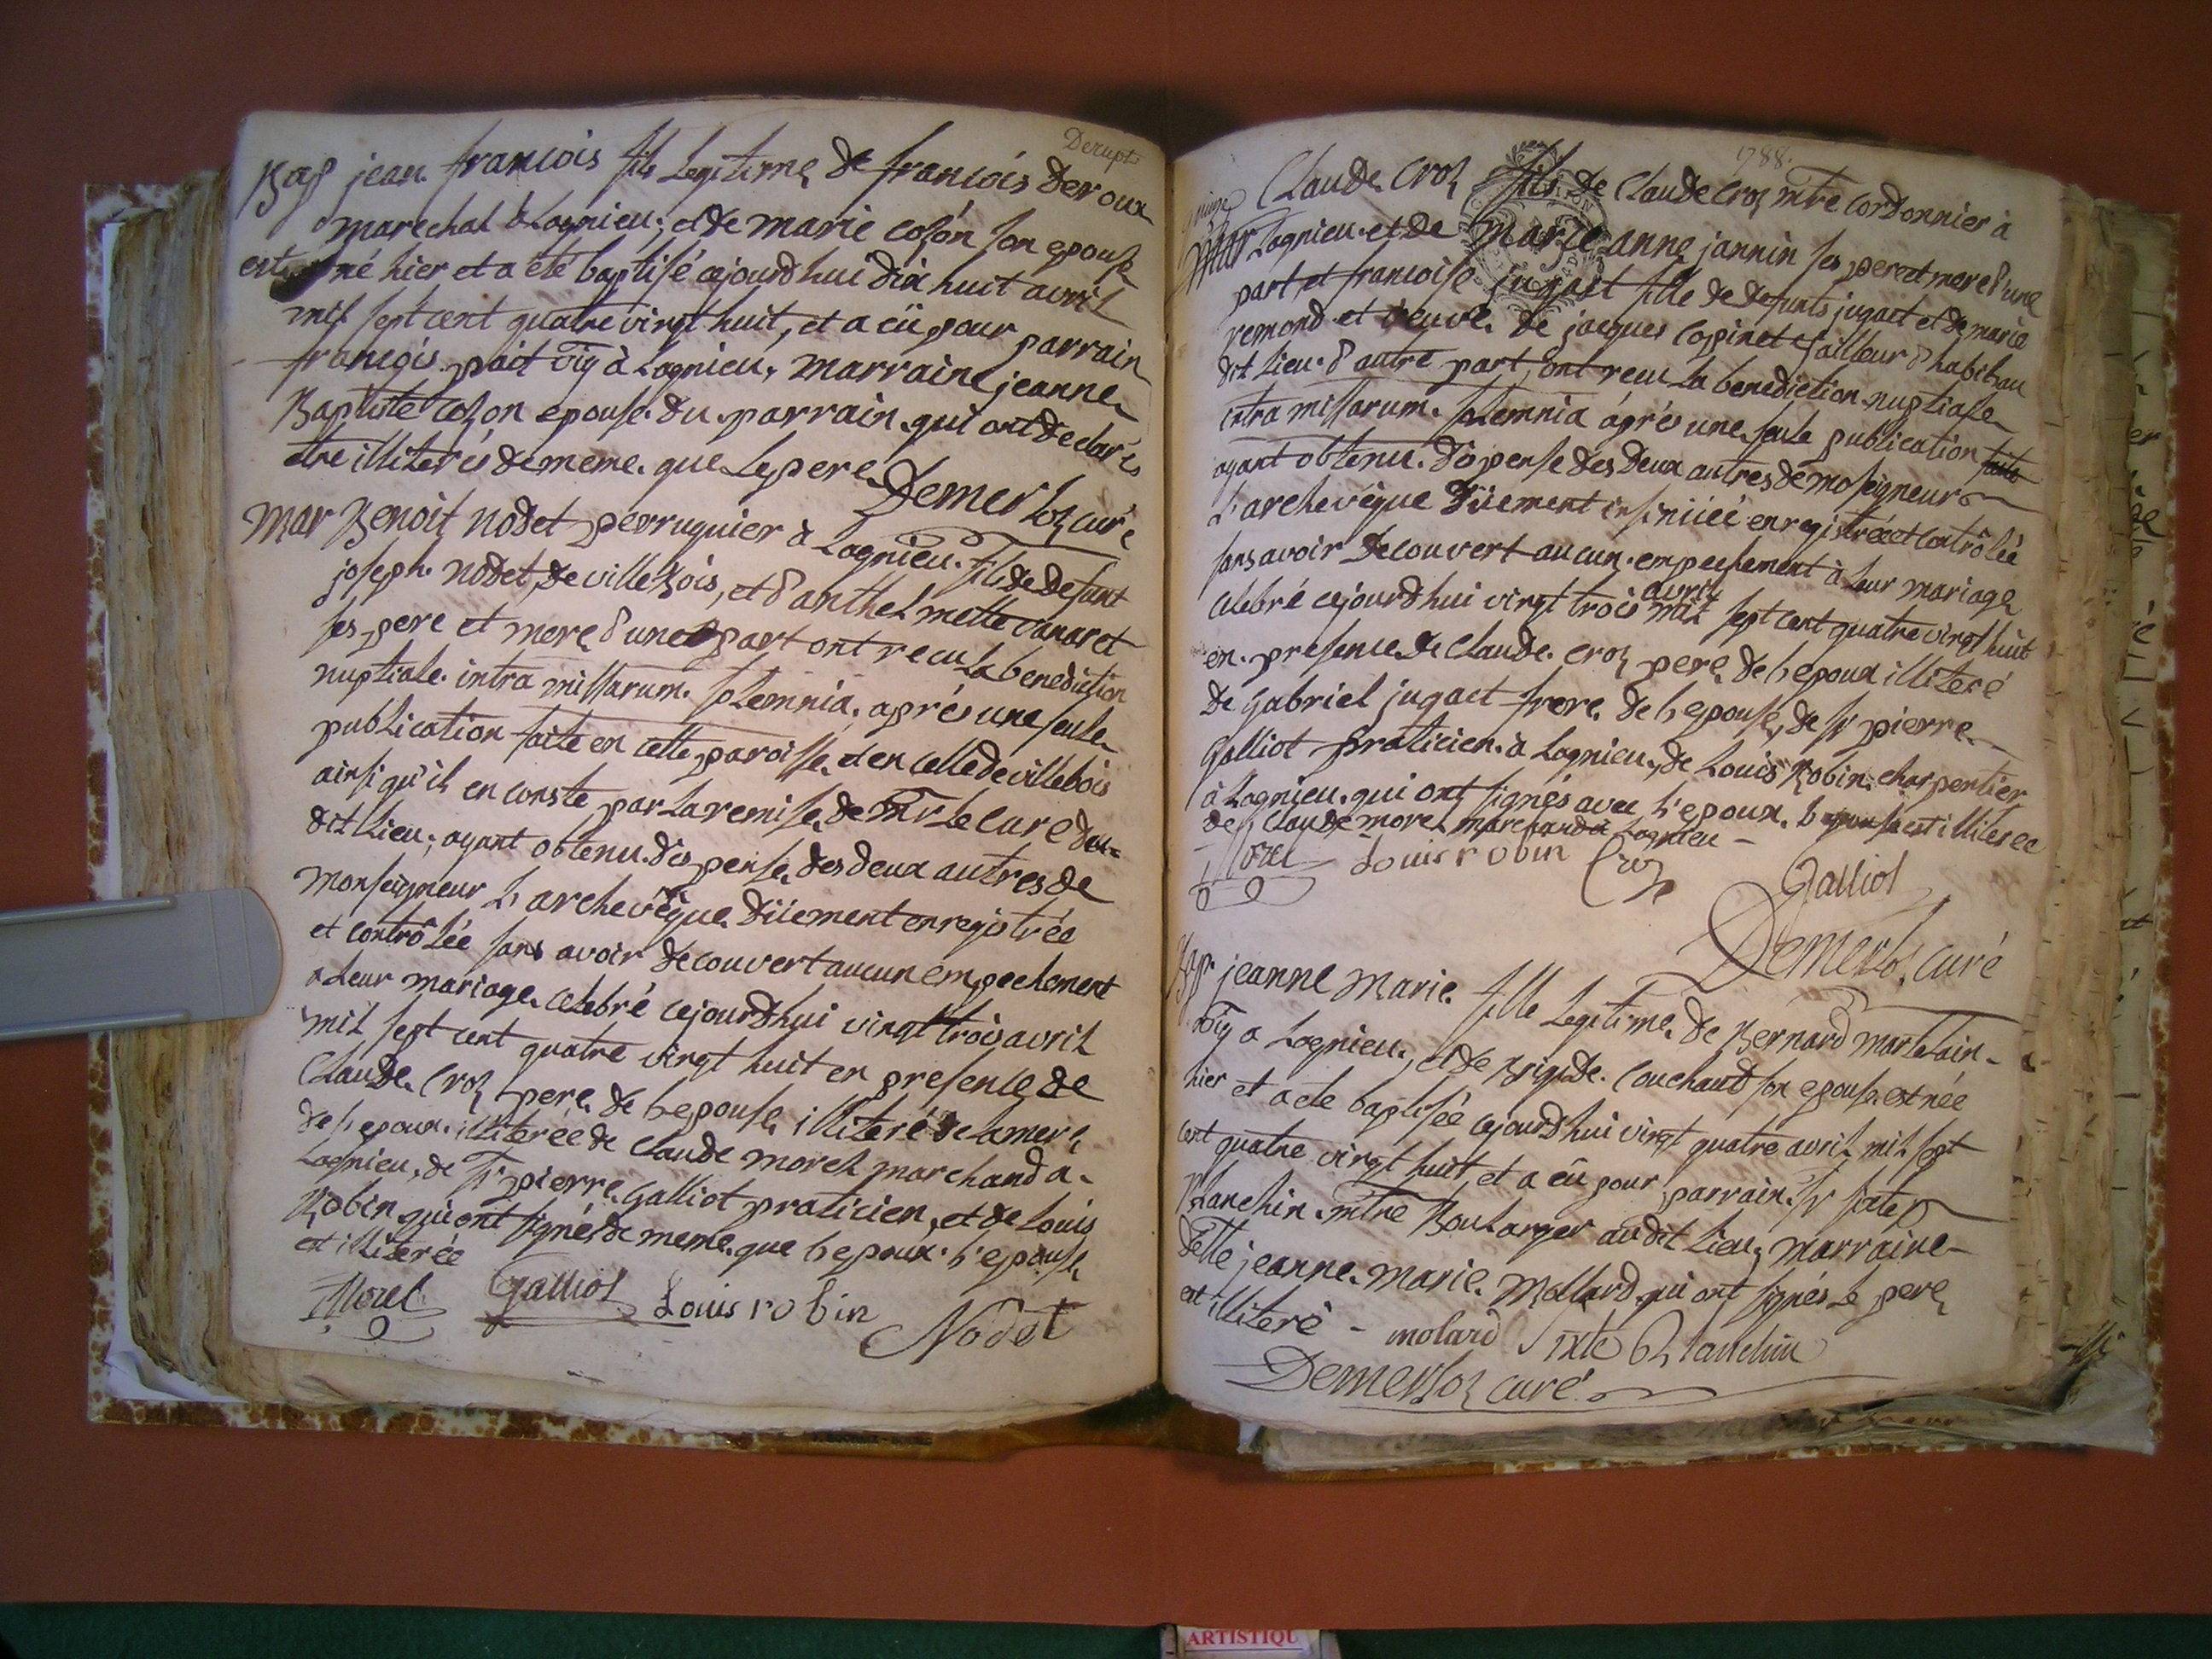 Derupt
Bap jean francois fils Legitime de francois deroux
marechal à Lagnieu; et de marie cozon son epouse
est né hier et a été baptisé cejourdhui dix huit avril
mil sept cent quatre vingt huit, et a eü pour parrain
francois pait vig à Lagnieu, marraine jeanne
Baptiste cozon epouse du parrain qui ont declarés
etre illiterés de meme que le pere. Demerloz curé
Mar Benoit nodet perruquier à Lagnieu. fils de defunt
joseph nodet de villebois, et d'anthelmette canaret
ses pere et mere d'une part ont recu La benediction
nuptiale intra missarum solemnia, aprés une seule
publication faite en cette paroisse et en celle de villebois
ainsi qu'il en conste par La remise de mr Le curé du
dit Lieu; ayant obtenu dispense des deux autres de
monseigneur L'archevêque düement enregistrée
et contrôlée sans avoir decouvert aucun empechement
a Leur mariage celebré cejourdhui vingt trois avril
mil sept cent quatre vingt huit en presence de
Claude Croz pere de L'epouse illiteré de La mere
de L'epoux illiterée de Claude morel marchand a
Lagnieu, de Sr pierre Galliot praticien, et de Louis
Robin qui ont signés de meme que L'epoux. L'epouse
est illiterée
Morel Galliot Louis robin Nodet
1788.
Claude Croz fils de Claude Croz mtre Cordonnier à
Mar Lagnieu et de Marie anne jannin ses pere et mere d'une
part et francoise jugact fille de defunts jugact et de marie
remond et veuve de jacques Copinet tailleur d'habit au
dit Lieu d'autre part, ont recu La benediction nuptiale
intra missarum solemnia aprés une seule publication faite
ayant obtenu dispense des deux autres de moseigneur
L'archevêque düement insinüée enregistrée et contrôlée
sans avoir decouvert aucun empechement à Leur mariage
avril
celebré cejourdhui vingt trois mil sept cent quatre vingt huit
en presence de Claude Croz pere de L'epoux illiteré
de Gabriel jugact frere de L'epouse, de Sr pierre
Galliot praticien à Lagnieu, de Louis Robin charpentier
à Lagnieu qui ont signés avec L'epoux. L'epouse est illiterée
de Claude morel marchand à Lagnieu
Morel Louis robin Croz
Galliot
Demerloz curé
Bap jeanne Marie fille Legitime de Bernard martelain
vig a Lagnieu, et de brigide Couchaud son epouse est née
hier et a eté baptisée cejourdhui vingt quatre avril mil sept
cent quatre vingt huit, et a eü pour parrain Sr
Blanchin mtre Boulanger audit Lieu; marraine
delle jeanne Marie Mollard qui ont signés Le pere
est illiteré - molard Sixte Blanchin
Demerloz curé
ARTISTIQU